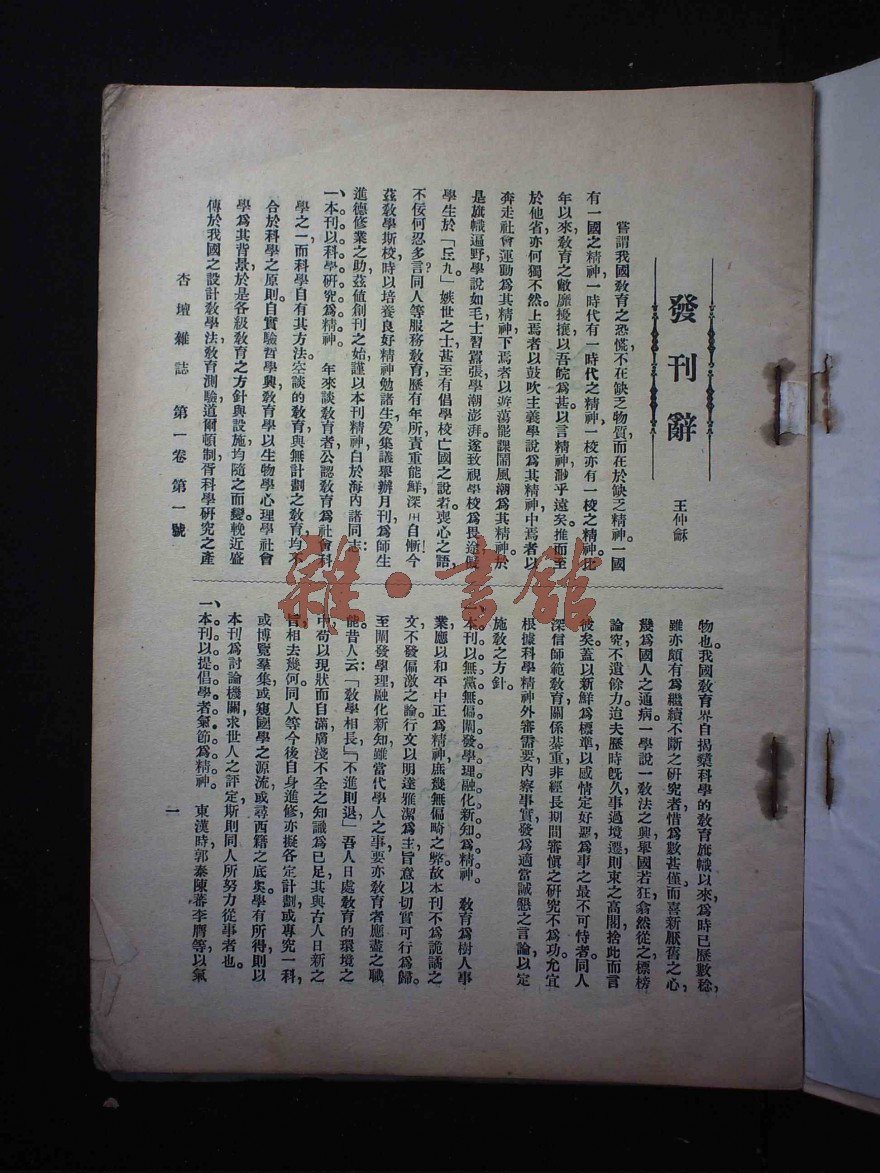 發刊辭
王仲龢
嘗謂我國教育之恐慌,不在缺乏物質,而在於缺乏精神。一國
有一國之精神,一時代有一時代之精神,一校亦有一校之精神。比
年以來,教育之敝,靡擾攘以吾皖爲甚。以言精神,渺乎遠矣。推而至
於他省,亦何獨不然。上焉者以鼓吹主義學說爲其精神,中焉者以
奔走社會運動爲其精神,下焉者以游蕩罷課鬧風潮爲其精神。於
是旗幟逼野,學說如毛,士習囂張,學潮澎湃。遂致視學校爲畏途,
學生於「丘九」。嫉世之士,甚至有倡學校亡國之說者。喪心之語,
不佞何忍多言?同人等服務教育,歷有年所,責重能鮮,深用自慚!今
茲敎學斯校,時以培養良好精神勉諸生,爰集議舉辦月刊,爲師生
進德修業之助。茲値創刊之始,謹以本刊精神,白於海內諸同志:
一、本刊以科學研究爲精神。 年來談敎育者,公認敎育爲社會科
學之一,而科學自有其方法。空談的敎育,與無計劃之敎育,均不
合於科學之原則。自實驗哲學興,敎育學以生物學心理學社會
學爲其背景,於是各級敎育之方針與設施,均隨之而變。輓近盛
傳於我國之設計敎學法,敎育測驗,道爾頓制,胥科學研究之產
物也。我國敎育界自揭櫫科學的敎育旗幟以來,爲時已歷數稔,
雖亦頗有爲繼續不斷之研究者,惜爲數甚僅,而喜新厭舊之心,
幾爲國人之通病。一學說一敎法之興,舉國若狂,翕然從之,標榜
論究,不遺餘力。迨夫歷時旣久,事過境遷,則束之高閣,捨此而言
彼矣。蓋以新鮮爲標準,以感情定好惡,爲事之最不可恃者。同人
深信師範敎育,關係綦重,非經長期間審愼之研究不爲功。尤宜
根據科學精神,外審需要,內察事實,發爲適當誠懇之言論,以定
施敎之方針。
一、本刊以無黨無偏闡發學理融化新知爲精神。 敎育爲樹人事
業,應以和平中正爲精神,庶幾無偏畸之弊。故本刊不爲詭譎之
文,不發偏激之論。行文以明達雅潔爲主,旨意以切實可行爲歸。
至闡發學理,融化新知,雖當代學人之事,要亦敎育者應盡之職
能。昔人云:「敎學相長」,「不進則退」,吾人日處敎育的環境之
中,苟以現狀而自滿,膚淺不全之知識爲已足,其與古人日新之
旨,相去幾何。同人等今後自身進修,亦擬各定計劃,或專究一科,
或博覽羣集,或窺國學之源流,或尋西籍之底奧。學有所得,則以
本刊爲討論機關,求世人之評定,斯則同人所努力從事者也。
一、本刊以提倡學者氣節爲精神。 東漢時郭泰陳蕃李膺等,以氣
杏壇雜誌 第一卷 第一號
一
雜·書館